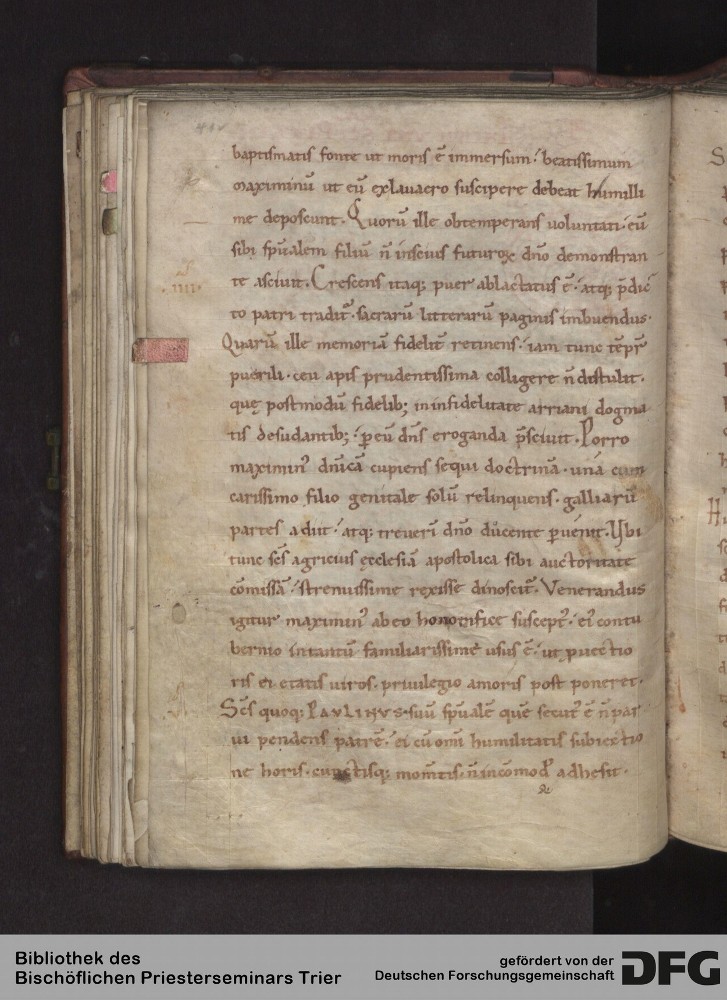 baptismatis fonte ut moris ē immersum. beatissimum
maximinū ut eū exlauacro suscipere debeat humilli
me deposcunt. Quorū ille obtemperans uoluntati. eū
sibi sp̄ualem filiū n̄ inscius futuroꝝ dn̄o demonstran
te asciuit. Crescens itaq; puer ablactatus ē. atq; p̄dic
to patri tradit᷒. sacrarū litterarū paginis imbuendus.
Quarū ille memoriā fidelit᷒ retinens. iam tunc
puerili. ceu apis prudentissima colligere n̄ distulit.
quę postmodū fidelib; ininfidelitate arriani dogma
tis desudantib; ꝑeū dn̄s eroganda p̄sciuit. Porro
maximin᷒ dn̄icā cupiens sequi doctrinā. unā cum
carissimo filio genitale solū relinquens. galliarū
partes adiit. atq; treuerī dn̄o ducente ꝑuenit. Vbi
tunc sc̄s agricius ęcclesiā apostolica sibi auctoritate
cōmissā. strenuissime rexisse dinoscit᷒. Venerandus
igitur maximin᷒ abeo honorifice suscept᷒. ei᷒ contu
bernio intantū familiarissime usus ē. ut ꝓuectio
ris ei etatis uiros. priuilegio amoris post poneret.
Sc̄s quoq; PAVLINVS. suū sp̄ualē quē secut᷒ ē n̄ par
ui pendens patrē. ei cū omi humilitatis subiectio
ne horis. cunctisq; mom̄tis. n̄ incōmod᷒ adhesit.
Bibliothek des
Bischöflichen Priesterseminars Trier
gefördert von der
Deutschen Forschungsgemeinschaft
DFG